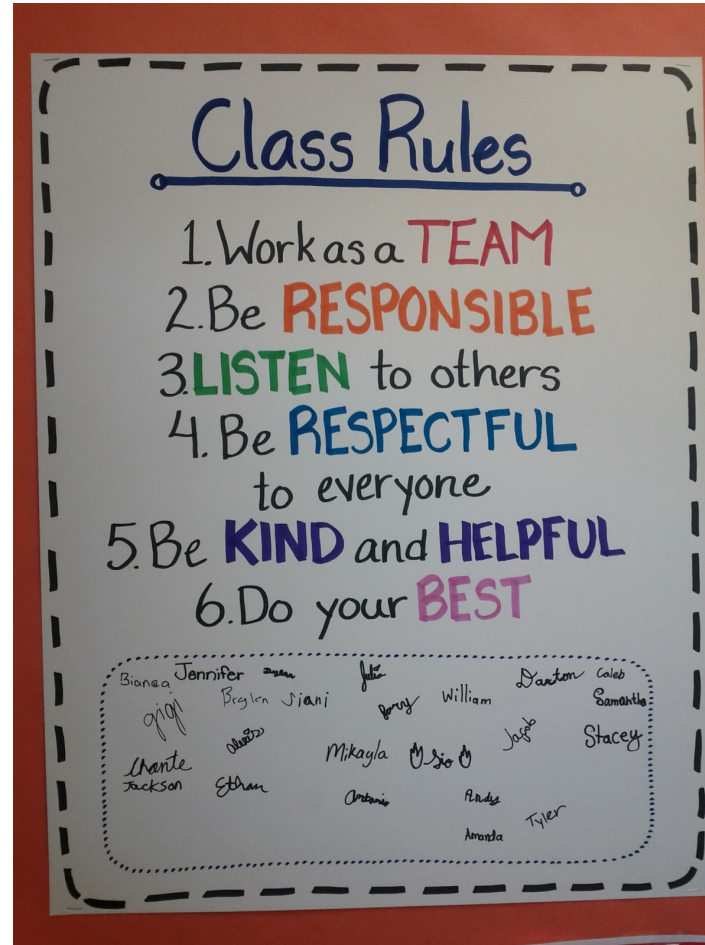 Class Rules
1. Work as a TEAM
2. Be RESPONSIBLE
3. LISTEN to others
4. Be RESPECTFUL
to everyone
5. Be KIND and HELPFUL
6. Do your BEST
Bianca Jennifer Julia Daxton Caleb
gigi Siani William Samantha
Mikayla Jacob Stacey
Chante
Jackson Ethan Antonio Andy
Tyler
Amanda